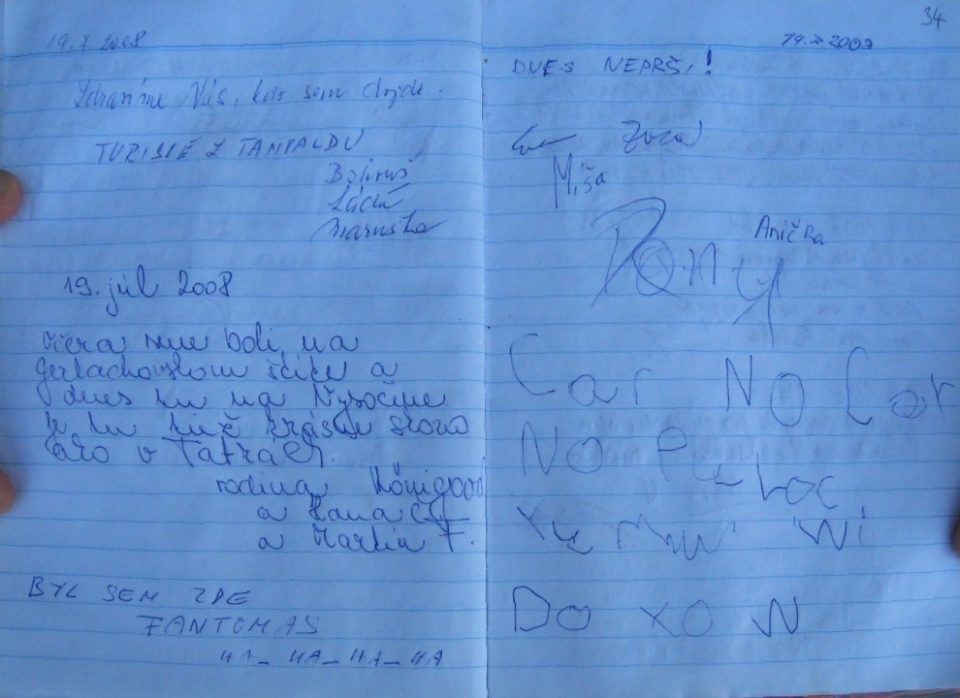 19.7.2008
Zdravíme Vás, kdo sem dojde.
TURISTÉ Z TANVALDU
Bohouš
Láďa
Maruška
19. júl 2008
včera sme boli na
Gerlachovskom štíte a
dnes tu na Vysočine
je tu tiež krásne skoro
ako v Tatrách.
rodina
a Hana
a Martin F.
BYL SEM ZDE
FANTOMAS
HA_HA_HA_HA
34
DNES NEPRŠÍ!
Míša
Anička
Dony
Car NO Car
No
Loc
Wi
Do XO W